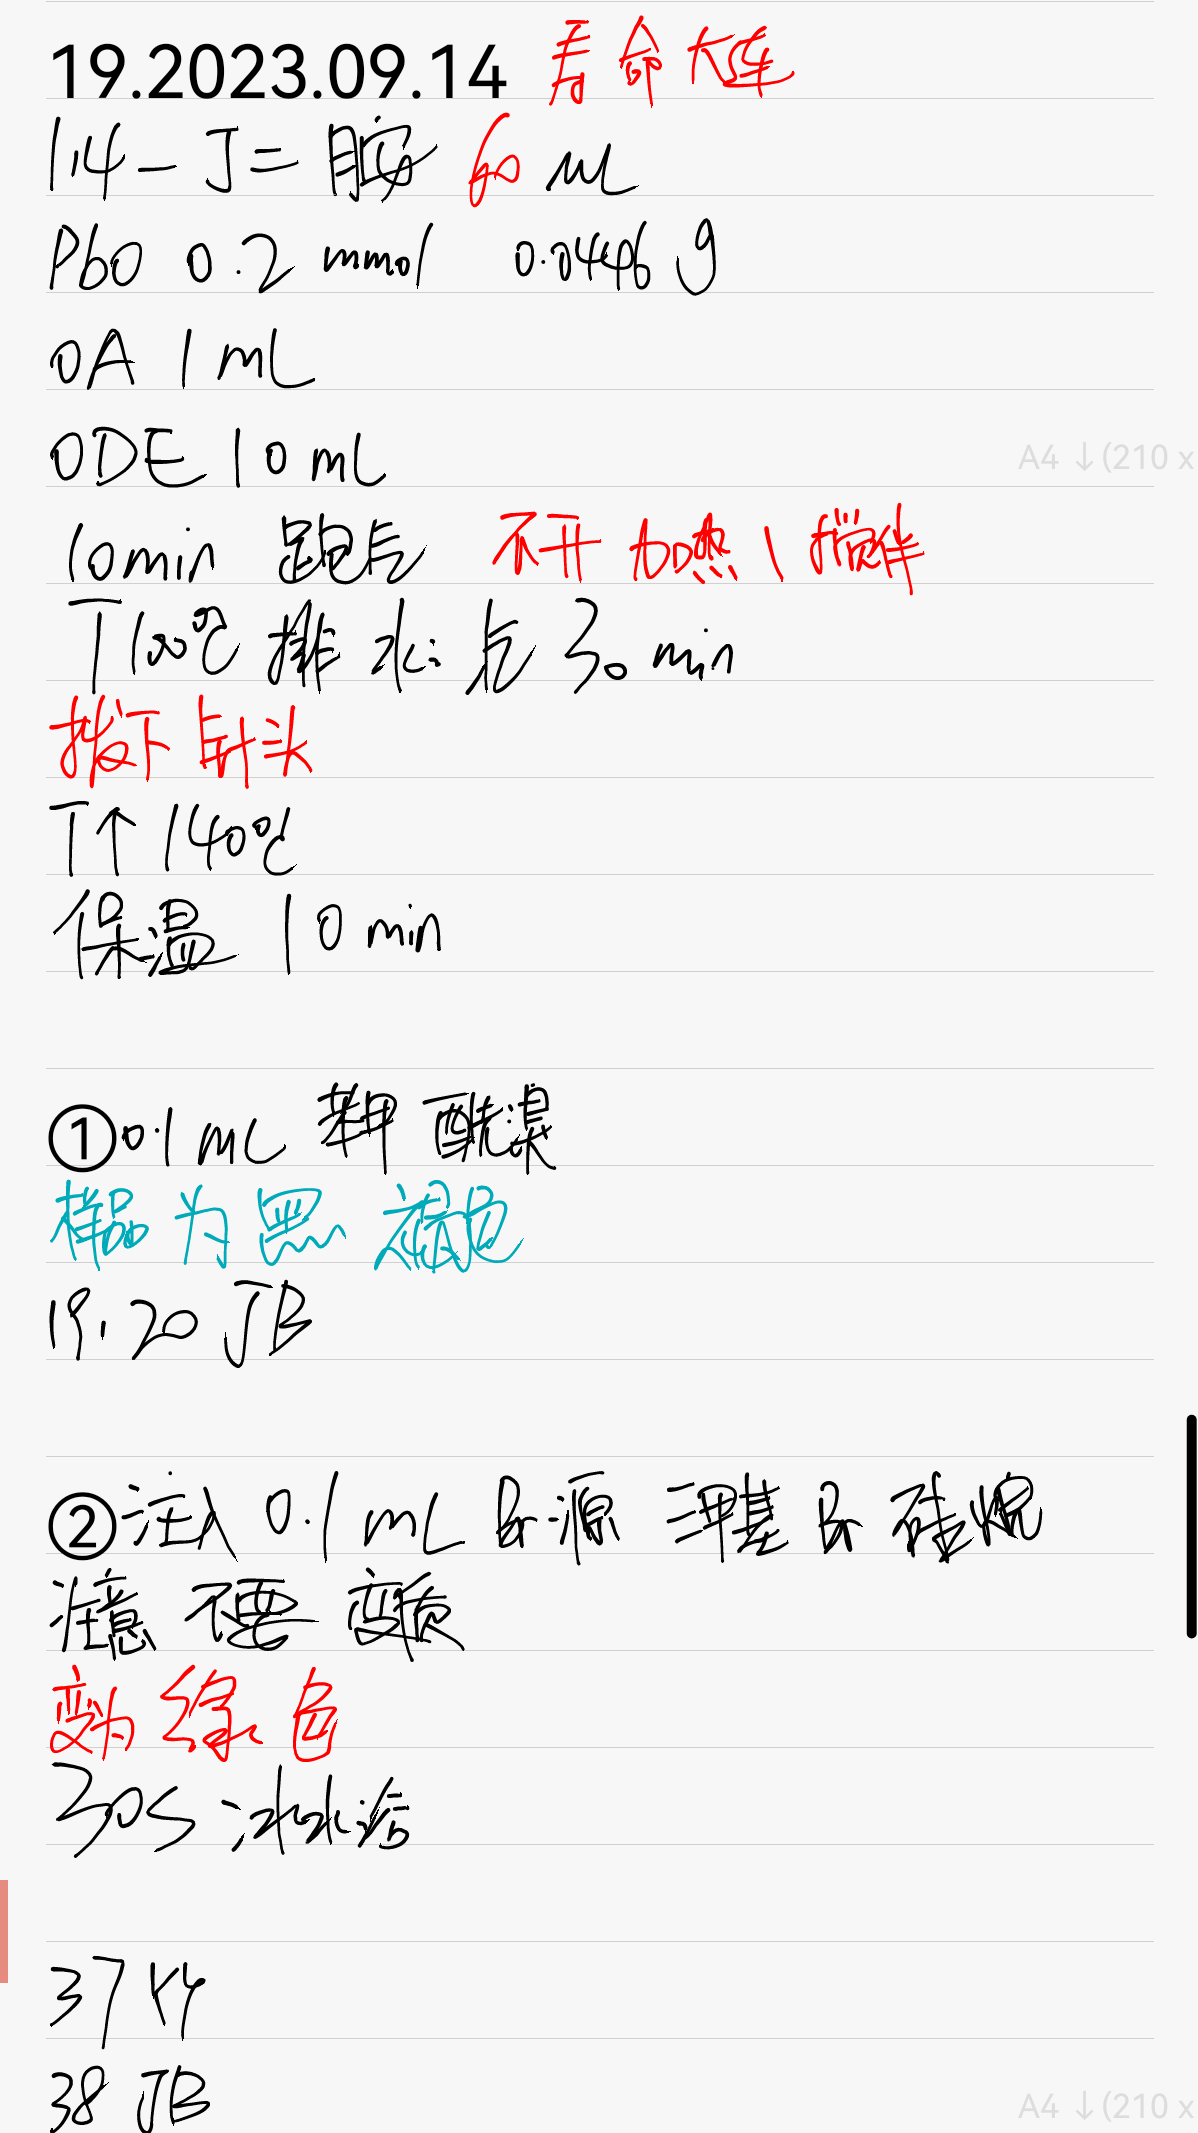 19.2023.09.14 寿命大连
1,4-丁二胺 60 μL
PbO 0.2 mmol 0.0446 g
OA 1 mL
ODE 10 mL
A4 ↓(210 x
10min 跑气 不开加热、搅拌
T 100℃ 排水气 30 min
拔下针头
T↑ 140℃
保温 10 min
①0.1 mL 苯甲酰溴
样品为黑褐色
19.20 JB
②注入 0.1 mL Br源 三甲基Br硅烷
注意不要变质
变为绿色
30s 冰水浴
37 YY
38 JB
A4 ↓(210 x